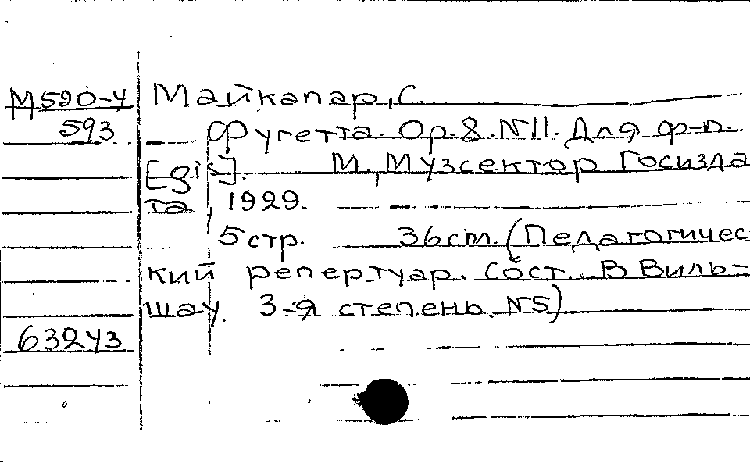 М590-4 Майкапар, С.
593 Фугетта. Op.8. №11. Для ф-п.
[gis]. М., Музсектор Госизда
та, 1929.
5 стр. 36 cm. (Педагогичес
кий репертуар. Сост. В Виль=
шау. 3-я степень. №5)
63243